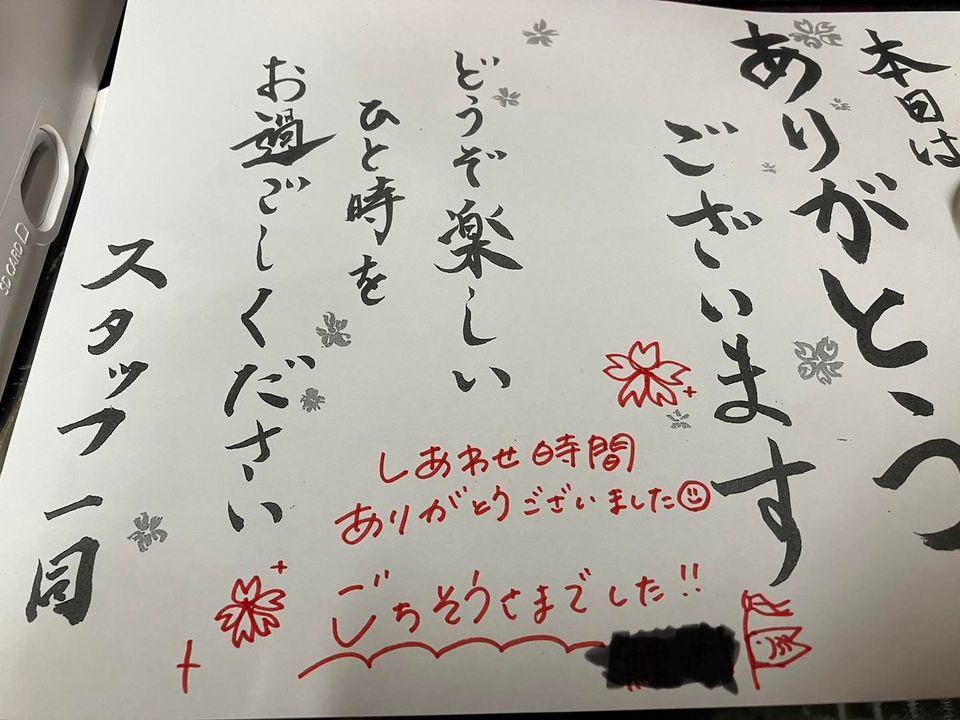 本日は
ありがとう
ございます
どうぞ楽しい
ひと時を
お過ごしください
スタッフ一同
しあわせ時間
ありがとうございました
ごちそうさまでした!!
SD CARD